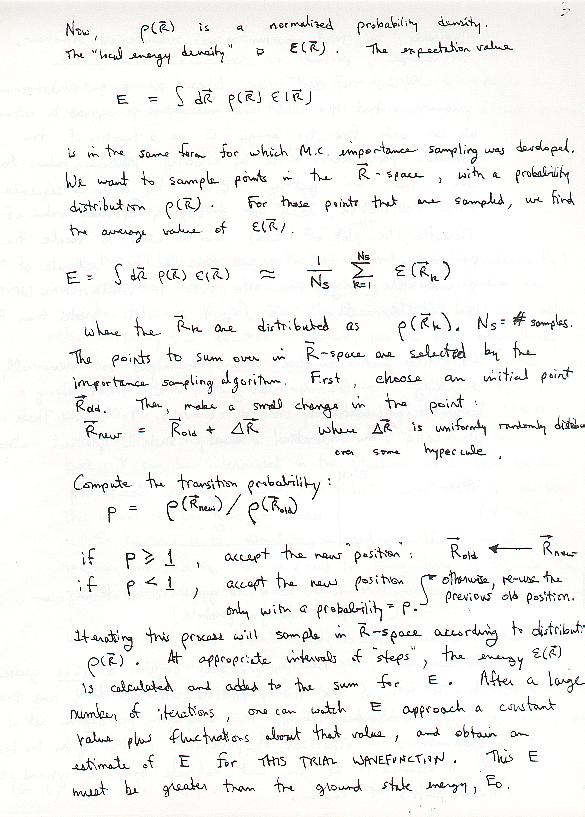 Now, ρ(R⃗) is a normalized probability density.
The "local energy density" is ε(R⃗). The expectation value
E = ∫ dR⃗ ρ(R⃗) ε(R⃗)
is in the same form for which M.C. importance sampling was developed.
We want to sample points in the R⃗-space, with a probability
distribution ρ(R⃗). For those points that are sampled, we find
the average value of ε(R⃗).
E = ∫ dR⃗ ρ(R⃗) ε(R⃗) ≈ 1/Ns Σ_{k=1}^{Ns} ε(R⃗k)
where the R⃗k are distributed as ρ(R⃗k). Ns = # samples.
The points to sum over in R⃗-space are selected by the
importance sampling algorithm. First, choose an initial point
R⃗old. Then, make a small change in the point:
R⃗new = R⃗old + ΔR⃗ where ΔR⃗ is uniformly randomly distribu
over some hypercube.
Compute the transition probability:
p = ρ(R⃗new) / ρ(R⃗old)
if p ≥ 1, accept the new "position": R⃗old ← R⃗new
if p < 1, accept the new position { otherwise, re-use the
only with a probability = p. previous old position.
Iterating this process will sample in R⃗-space according to distribut
ρ(R⃗). At appropriate intervals of "steps", the energy ε(R⃗)
is calculated and added to the sum for E. After a large
number of iterations, one can watch E approach a constant
value plus fluctuations about that value, and obtain an
estimate of E for THIS TRIAL WAVEFUNCTION. This E
must be greater than the ground state energy, E₀.